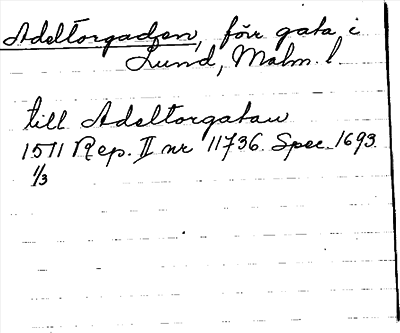 Adeltorgaden, förr gata i
Lund, Malm. l.
till Adeltorgatan
1511 Rep. II nr 11736. Spec. 1693.
1/3